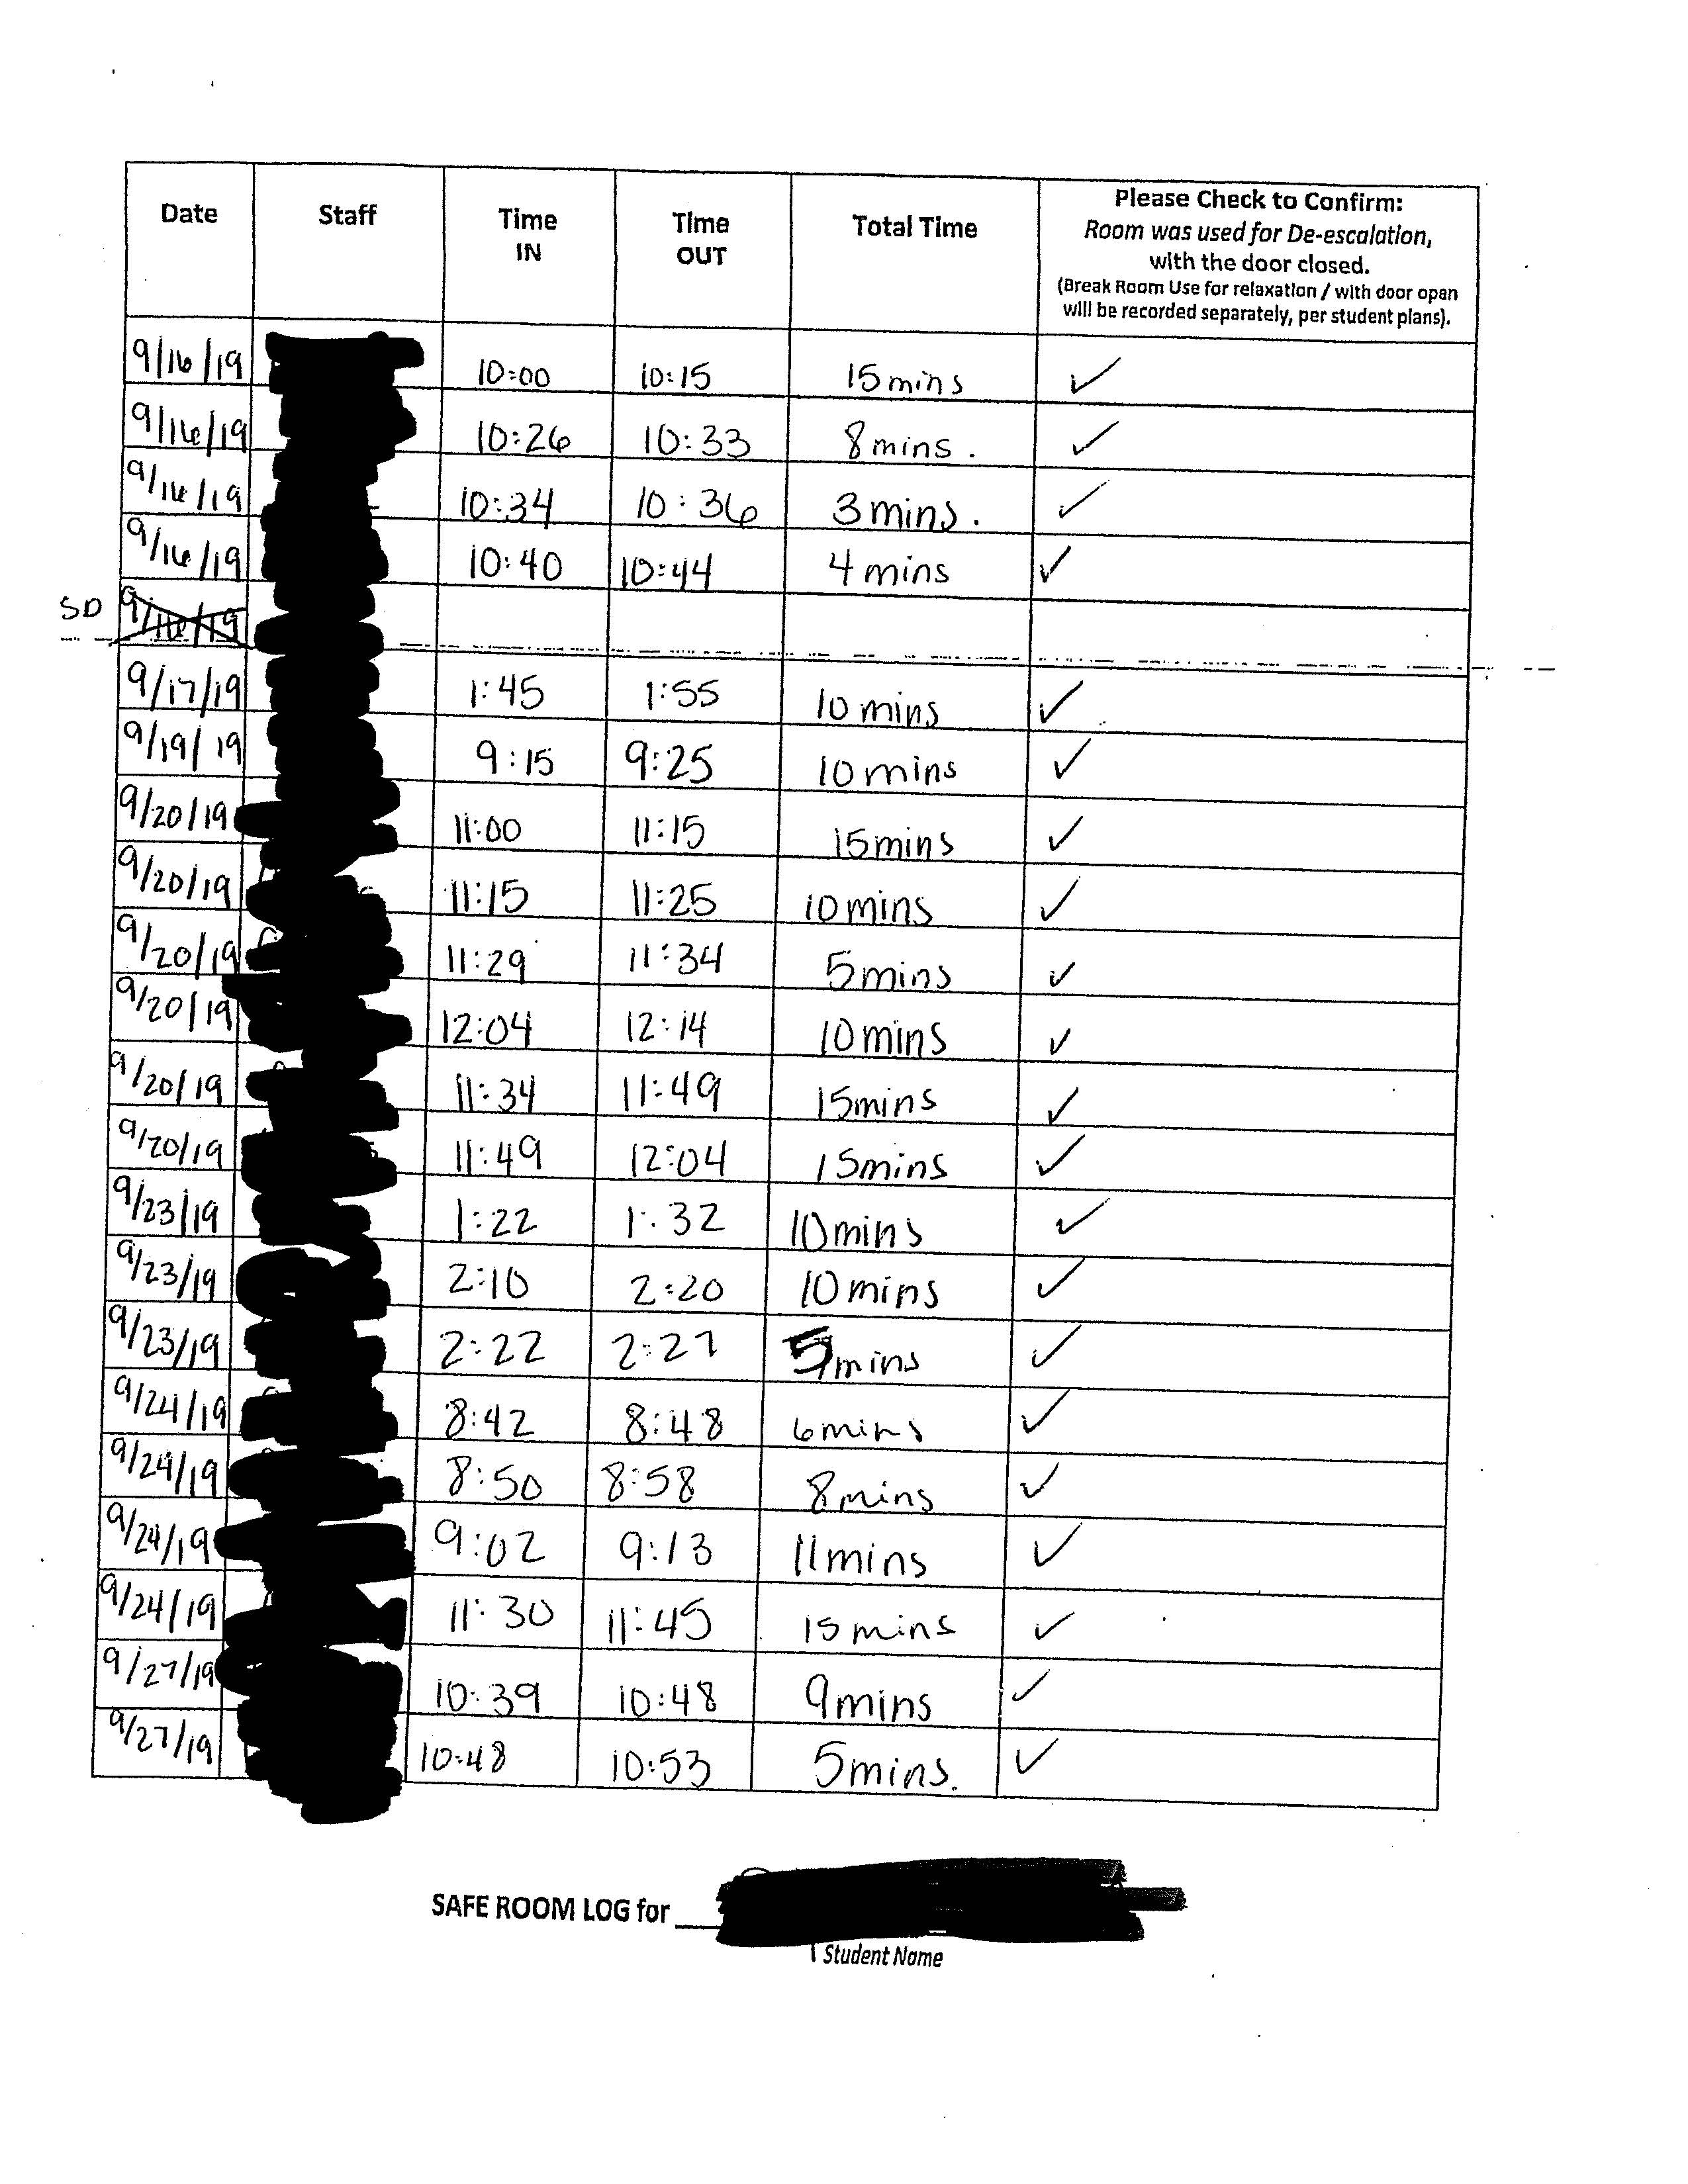 Date Staff Time IN Time OUT Total Time Please Check to Confirm:
Room was used for De-escalation,
with the door closed.
(Break Room Use for relaxation / with door open
will be recorded separately, per student plans).
9/16/19 10:00 10:15 15 mins ✓
9/16/19 10:26 10:33 8 mins. ✓
9/16/19 10:34 10:36 3 mins. ✓
9/16/19 10:40 10:44 4 mins ✓
SD 9/16/19
9/17/19 1:45 1:55 10 mins ✓
9/19/19 9:15 9:25 10 mins ✓
9/20/19 11:00 11:15 15 mins ✓
9/20/19 11:15 11:25 10 mins ✓
9/20/19 11:29 11:34 5 mins ✓
9/20/19 12:04 12:14 10 mins ✓
9/20/19 11:34 11:49 15 mins ✓
9/20/19 11:49 12:04 15 mins ✓
9/23/19 1:22 1:32 10 mins ✓
9/23/19 2:10 2:20 10 mins ✓
9/23/19 2:22 2:27 5 mins ✓
9/24/19 8:42 8:48 6 mins ✓
9/24/19 8:50 8:58 8 mins ✓
9/24/19 9:02 9:13 11 mins ✓
9/24/19 11:30 11:45 15 mins ✓
9/27/19 10:39 10:48 9 mins ✓
9/27/19 10:48 10:53 5 mins. ✓
SAFE ROOM LOG for
Student Name